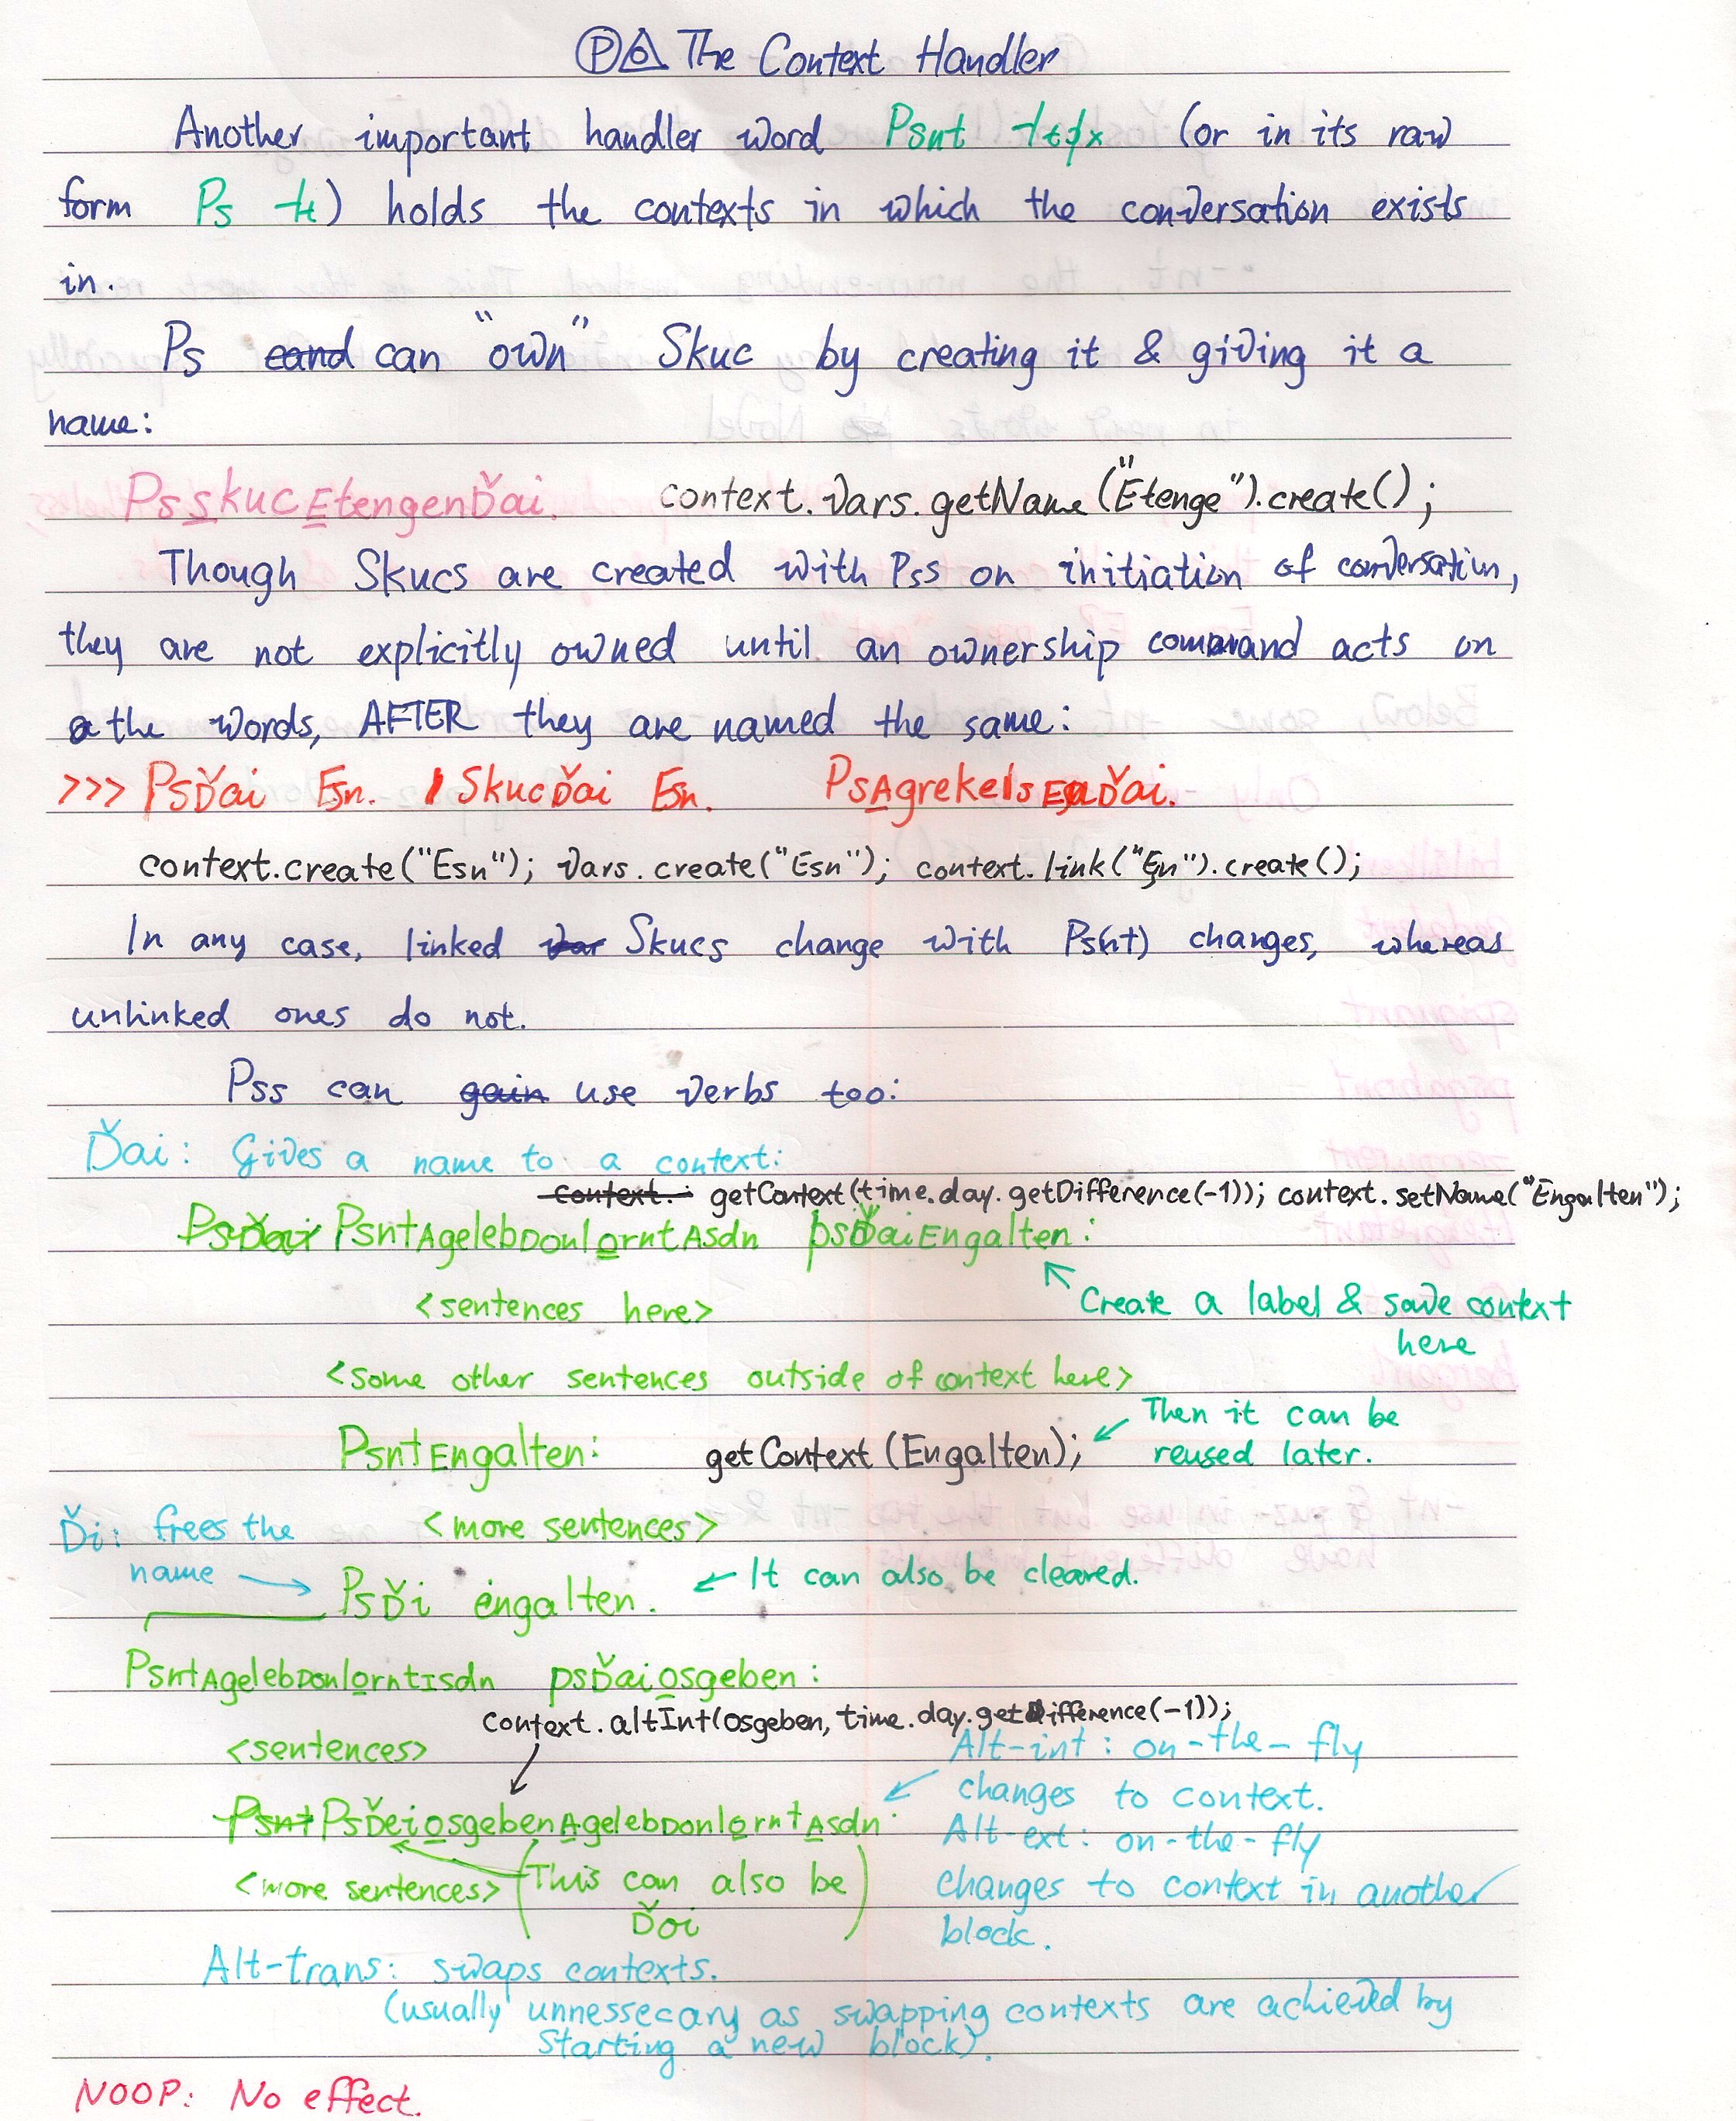 The Context Handler
Another important handler word Psnt (or in its raw
form Ps) holds the contexts in which the conversation exists
in.
Ps can "own" Skuc by creating it & giving it a
name:
PsskucEtengenĎai. context.vars.getName("Etenge").create();
Though Skucs are created with Pss on initiation of conversation,
they are not explicitly owned until an ownership command acts on
the words, AFTER they are named the same:
>>> PsĎai Esn. / SkucĎai Esn. PsAgrekelsEsnĎai.
context.create("Esn"); vars.create("Esn"); context.link("Esn").create();
In any case, linked Skucs change with Ps(nt) changes, whereas
unlinked ones do not.
Pss can use verbs too:
Ďai: Gives a name to a context:
getContext(time.day.getDifference(-1)); context.setName("Engalten");
PsntAgelebDonlorntAsdn psĎaiEngalten:
<sentences here>
Create a label & save context
here
<some other sentences outside of context here>
Then it can be
PsntEngalten: getContext(Engalten); reused later.
Ďi: frees the <more sentences>
name PsĎi engalten. It can also be cleared.
PsntAgelebDonlorntIsdn psĎaiosgeben:
context.altInt(osgeben, time.day.getDifference(-1));
<sentences> Alt-int: on-the-fly
changes to context.
PsĎeiosgebenAgelebDonlorntAsdn: Alt-ext: on-the-fly
<more sentences> (This can also be changes to context in another
Ďoi) block.
Alt-trans: swaps contexts.
(usually unnessecary as swapping contexts are achieved by
starting a new block).
NOOP: No effect.